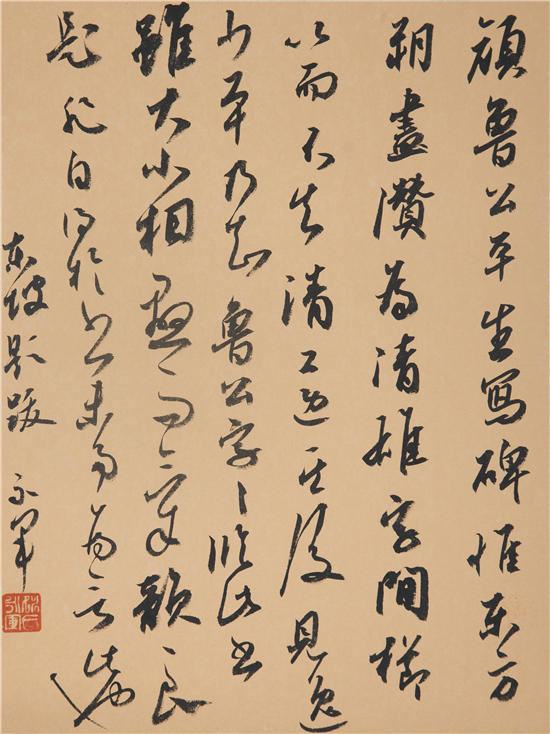 顔魯公平生寫碑惟東方
朔畫讚為清雄字間櫛
比而不失清遠其後見逸
少本乃知魯公字〻臨此書
雖大小相懸而氣韻良
是非自得於書未易為言此也
東坡題跋